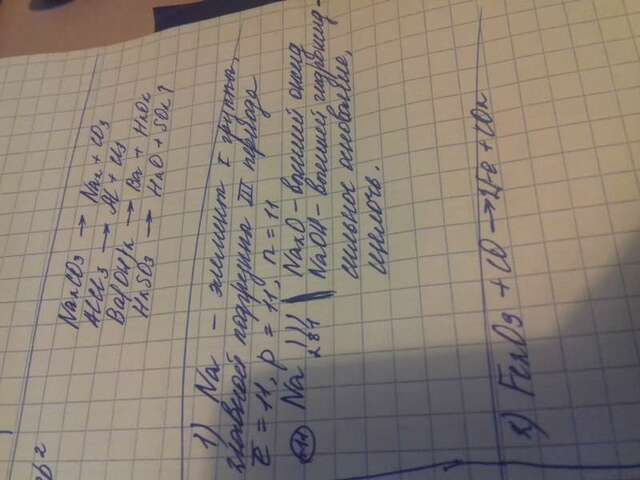 Na2CO3 → Na2 + CO3
AlCl3 → Al + Cl3
Ba(OH)2 → Ba + H2O2
H2SO3 → H2O + SO2?
1) Na - элемент I группы,
главной подгруппы III периода
e = 11, p = 11, n = 11
Na ))) Na2O - высший оксид
2 8 1 NaOH - высший гидроксид -
сильное основание,
щелочь.
2) Fe2O3 + CO → 2Fe + CO2